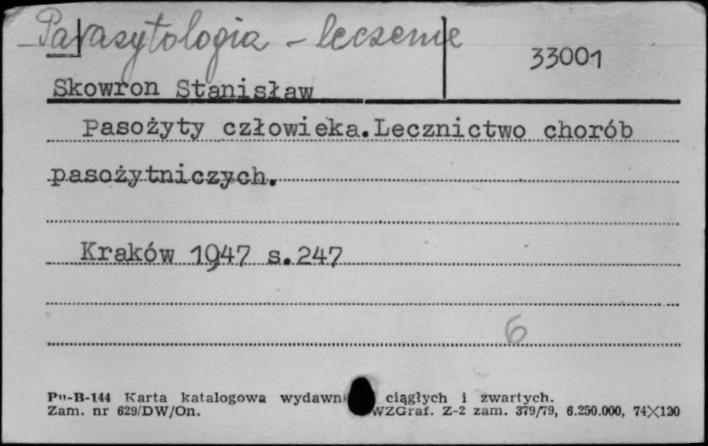 Parasytologia - leczenie
33001
Skowron Stanisław
Pasożyty człowieka.Lecznictwo chorób
pasożytniczych.
Kraków 1947 s.247
6
Pu-B-144 Karta katalogowa wydawn ciągłych i zwartych.
Zam. nr 629/DW/On. WZGraf. Z-2 zam. 379/79, 6.250.000, 74×120